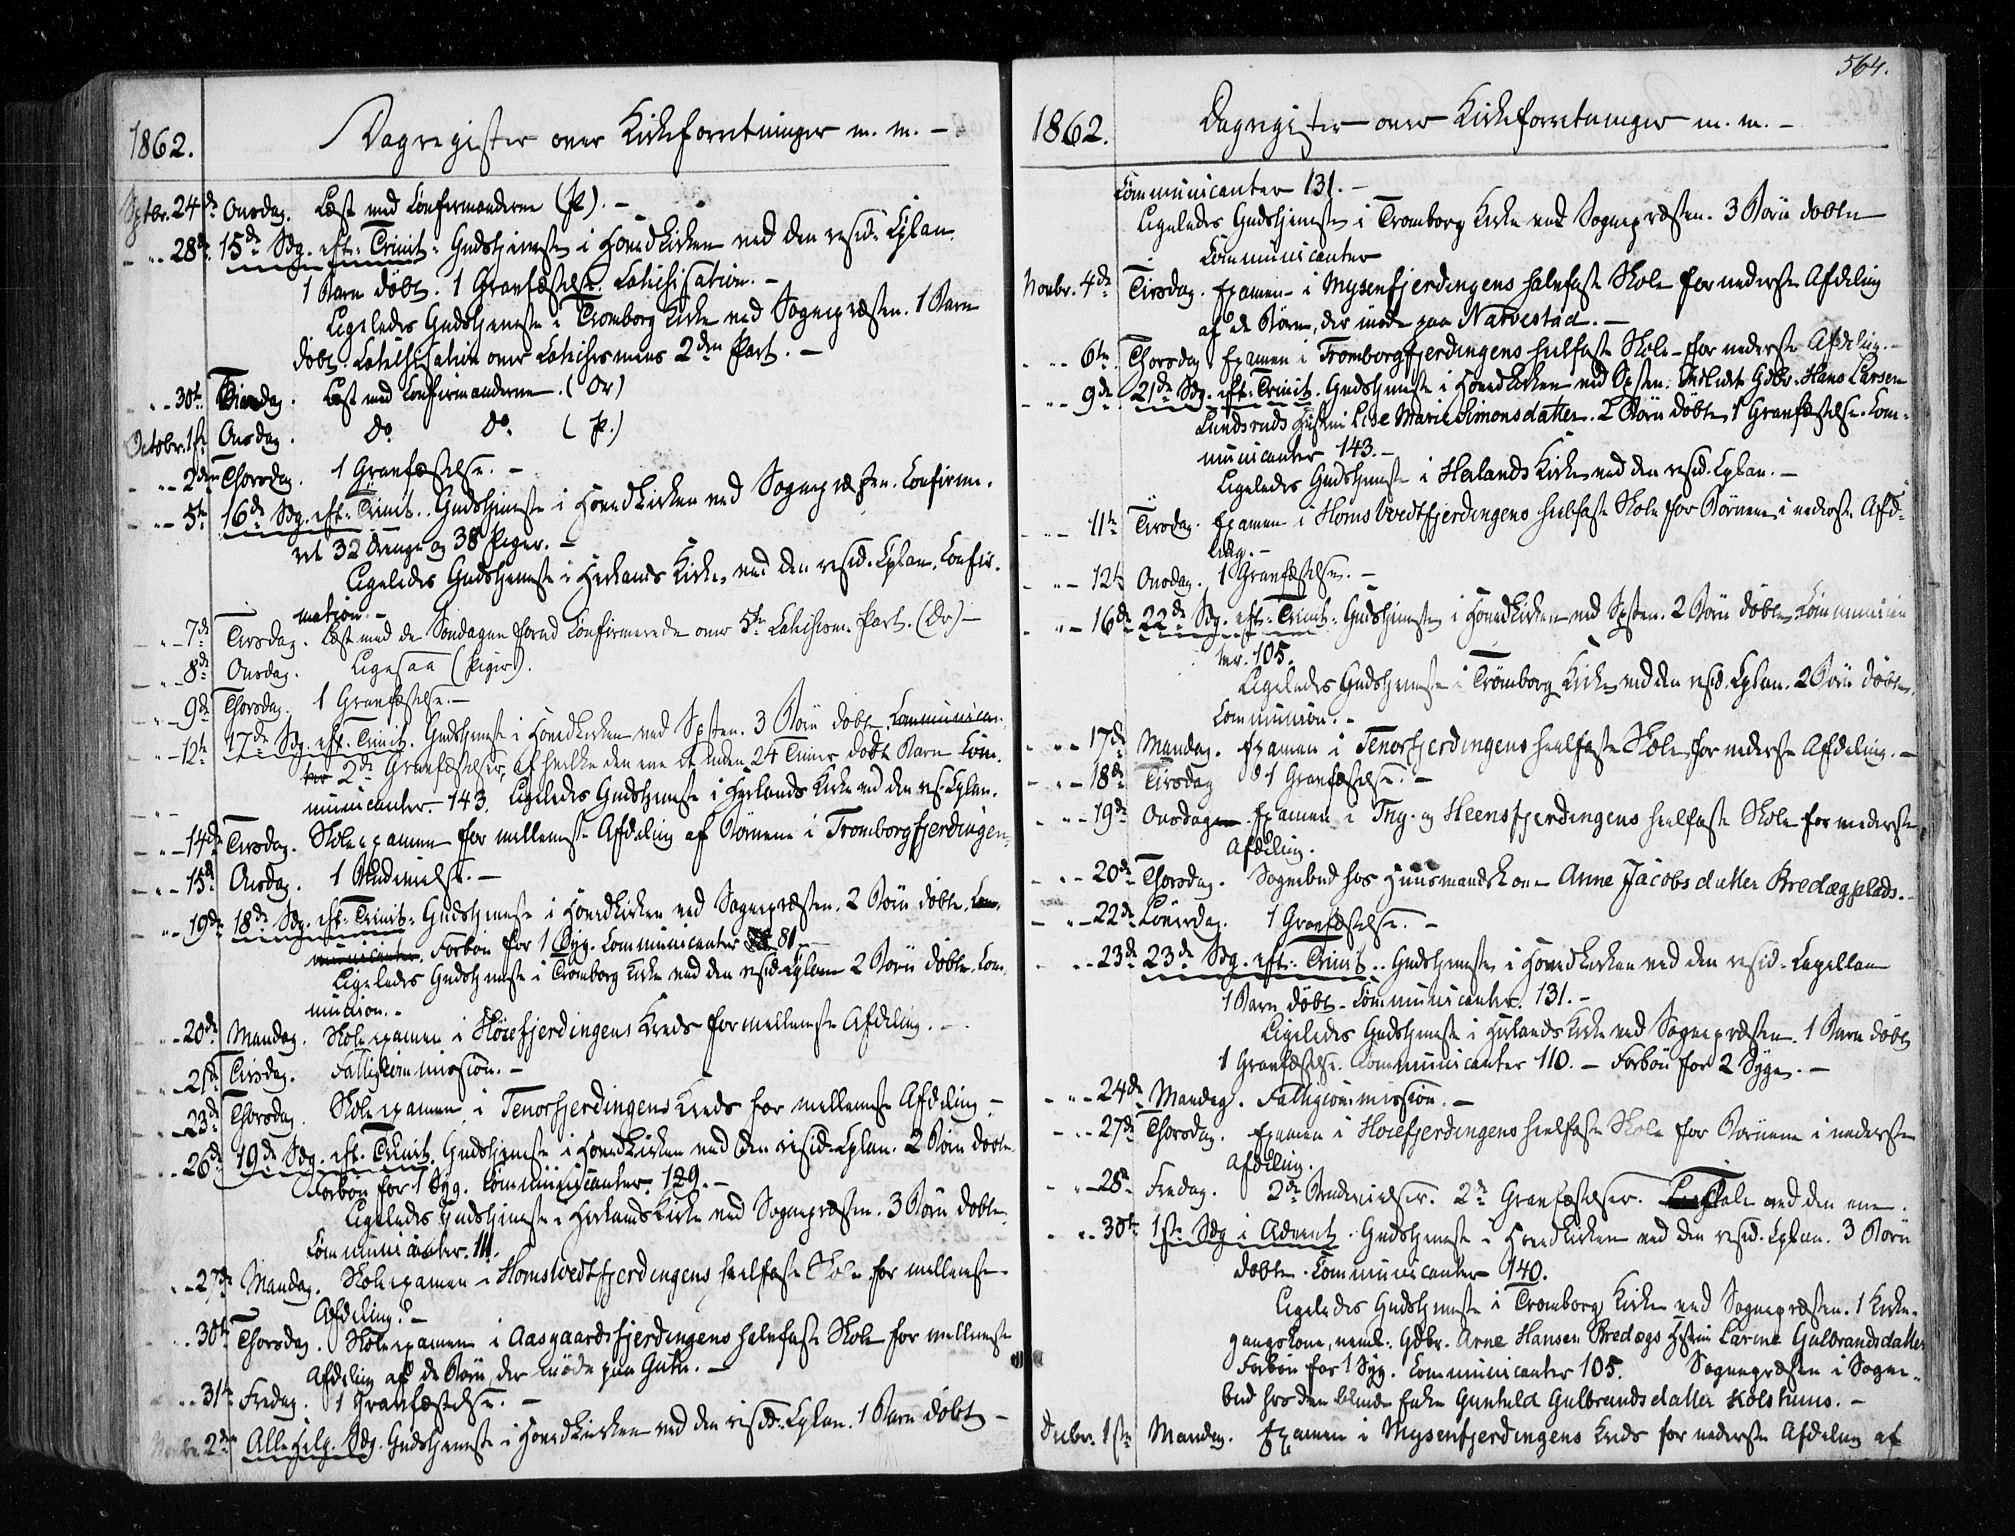 1862.
Dagregister over Kirkeforretninger m. m. –
Sptbr. 24de Onsdag. Læst med Confirmanderne (P). –
– „ – 28de 15de Sdg. eft. Trinit. Gudstjeneste i Hovedkirken ved den resid. Cplan.
1 Barn døbt. 1 Gravfæstelse. Catechisation. –
Ligeledes Gudstjeneste i Tromborg Kirke ved Sognepræsten. 1 Barn
døbt. Catechisation over Catechismens 2den Part. –
– „ – 30te Tirsdag. Læst med Confirmanderne. (Dr)
Octobr. 1ste Onsdag. do do (P.)
– „ – 2den Thorsdag. 1 Gravfæstelse. –
– „ – 5te 16de Sdg. eft. Trinit. Gudstjeneste i Hovedkirken ved Sognepræsten. Confirme-
ret 32 Drenge og 38 Piger. –
Ligeledes Gudstjeneste i Herlands Kirke, ved den resid. Cplan. Confir-
mation. –
– „ – 7de Tirsdag. Læst med de Søndagen forud Confirmerede over 5te Catechism. Part. (Dr) –
– „ – 8de Onsdag. Ligesaa (Piger).
– „ – 9de Thorsdag. 1 Gravfæstelse. –
– „ – 12te 17de Sdg. eft. Trinit. Gudstjeneste i Hovedkirken ved Spsten. 3 Børn døbte. Communican-
ter 2de Gravfæstelser, af hvilke den ene et inden 24 Timer dødt Barn Com-
municanter 143. Ligeledes Gudstjeneste i Herlands Kirke ved den res. Cplan.
– „ – 14de Tirsdag. Skoleexamen for mellemste Afdeling af Børnene i Tromborgfjerdingen.
– „ – 15de Onsdag. 1 Brudevielse. –
– „ – 19de 18de Sdg. eft. Trinit. Gudstjeneste i Hovedkirken ved Sognepræsten. 2 Børn døbte. Com-
municanter. Forbøn for 1 Syg. Communicanter 81. –
Ligeledes Gudstjeneste i Tromborg Kirke ved den resid. Cplan 2 Børn døbte. Com-
munion. –
– „ – 20de Mandag. Skoleexamen i Høiefjerdingens Kreds for mellemste Afdeling. –
– „ – 21de Tirsdag. Fattigkommission. –
– „ – 23de Thorsdag. Skoleexamen i Tenorfjerdingens Kreds for mellemste Afdeling –
– „ – 26de 19de Sdg. eft. Trinit. Gudstjeneste i Hovedkirken ved den resid. Cplan. 2 Børn døbte.
Forbøn for 1 Syg. Communicanter 129. –
Ligeledes Gudstjeneste i Herlands Kirke ved Sognepræsten. 3 Børn døbte.
Communicanter. 111.
– „ – 27de Mandag. Skoleexamen i Homstvedtfjerdingens heelfaste Skole for mellemste
Afdeling. –
„ 30te Thorsdag. Skoleexamen i Aasgaardsfjerdingens halvfaste Skole for mellemste
Afdeling af de Børn, der møde paa Gutu. –
„ 31te Fredag. 1 Gravfæstelse. –
Novbr. 2den Alle Helg. Sdg. Gudstjeneste i Hovedkirken ved den resid. Cplan. 1 Barn døbt –
564.
1862.
Dagregister over Kirkeforretninger m. m. –
Communicanter 131. –
Ligeledes Gudstjeneste i Tromborg Kirke ved Sognepræsten. 3 Børn døbte
Communicanter
Novbr. 4de Tirsdag. Examen i Mysenfjerdingens halvfaste Skole for nederste Afdeling
af de Børn, der møde paa Narvestad. –
– „ – 6te Thorsdag. Examen i Tromborgfjerdingens heelfaste Skole for nederste Afdeling. –
– „ – 9de 21de Sdg. eft. Trinit. Gudstjeneste i Hovedkirken ved Spsten. Indledt Gdbr. Hans Larsen
Lundsruds Hustru Lise Marie Simonsdatter. 2 Børn døbte, 1 Gravfæstelse. Com-
municanter 143. –
Ligeledes Gudstjeneste i Herlands Kirke ved den resid. Cplan. –
– „ – 11te Tirsdag. Examen i Homstvedtfjerdingens heelfaste Skole for Børnene i nederste Afde-
ling. –
– „ – 12te Onsdag. 1 Gravfæstelse. –
– „ – 16de 22de Sdg. eft. Trinit. Gudstjeneste i Hovedkirken ved Spsten. 2 Børn døbte. Communican
ter. 105.
Ligeledes Gudstjeneste i Trømborg Kirke ved den resid. Cplan. 2 Børn døbte.
Communion. –
– „ – 17de Mandag. Examen i Tenorfjerdingens heelfaste Skole for nederste Afdeling. –
– „ – 18de Tirsdag 1 Gravfæstelse. –
– „ – 19de Onsdagen Examen i Trig. og Heensfjerdingens heelfaste Skole for nederste
Afdeling.
– „ – 20de Thorsdag. Sognebud hos Huusmandskone Anne Jacobsdatter Bredægplads. –
– „ – 22de Løverdag. 1 Gravfæstelse. –
– „ – 23de 23de Sdg. eft. Trinit. Gudstjeneste i Hovedkirken ved den resid. Capellan
1 Barn døbt. Communicanter 131. –
Ligeledes Gudstjeneste i Herlands Kirke ved Sognepræsten. 1 Barn døbt
1 Gravfæstelse. Communicanter 110. – Forbøn for 2 Syge. –
– „ – 24de Mandag. Fattigcommission. –
– „ – 27de Thorsdag. Examen i Høiefjerdingens heelfaste Skole for Børnene i nederste
Afdeling.
– „ – 28de Fredag. 2de Brudevielser. 2de Gravfæstelser. Tale ved den ene.
„ 30te 1ste Sdg. i Advent. Gudstjeneste i Hovedkirken ved den resid. Cplan. 3 Børn
døbte. Communicanter 140.
Ligeledes Gudstjeneste i Tromborg Kirke ved Sognepræsten. 1 Kirke-
gangskone, neml. Gdbr. Arne Hansen Bredægs Hustru Larine Gulbrandsdatter
Forbøn for 1 Syg. Communicanter 105. Sognepræsten i Sogne-
bud hos den blinde Enke Gunhild Gulbrandsdatter Kolstuns. –
Decbr. 1ste Mandag. Examen i Mysenfjerdingens Kreds for nederste Afdeling af